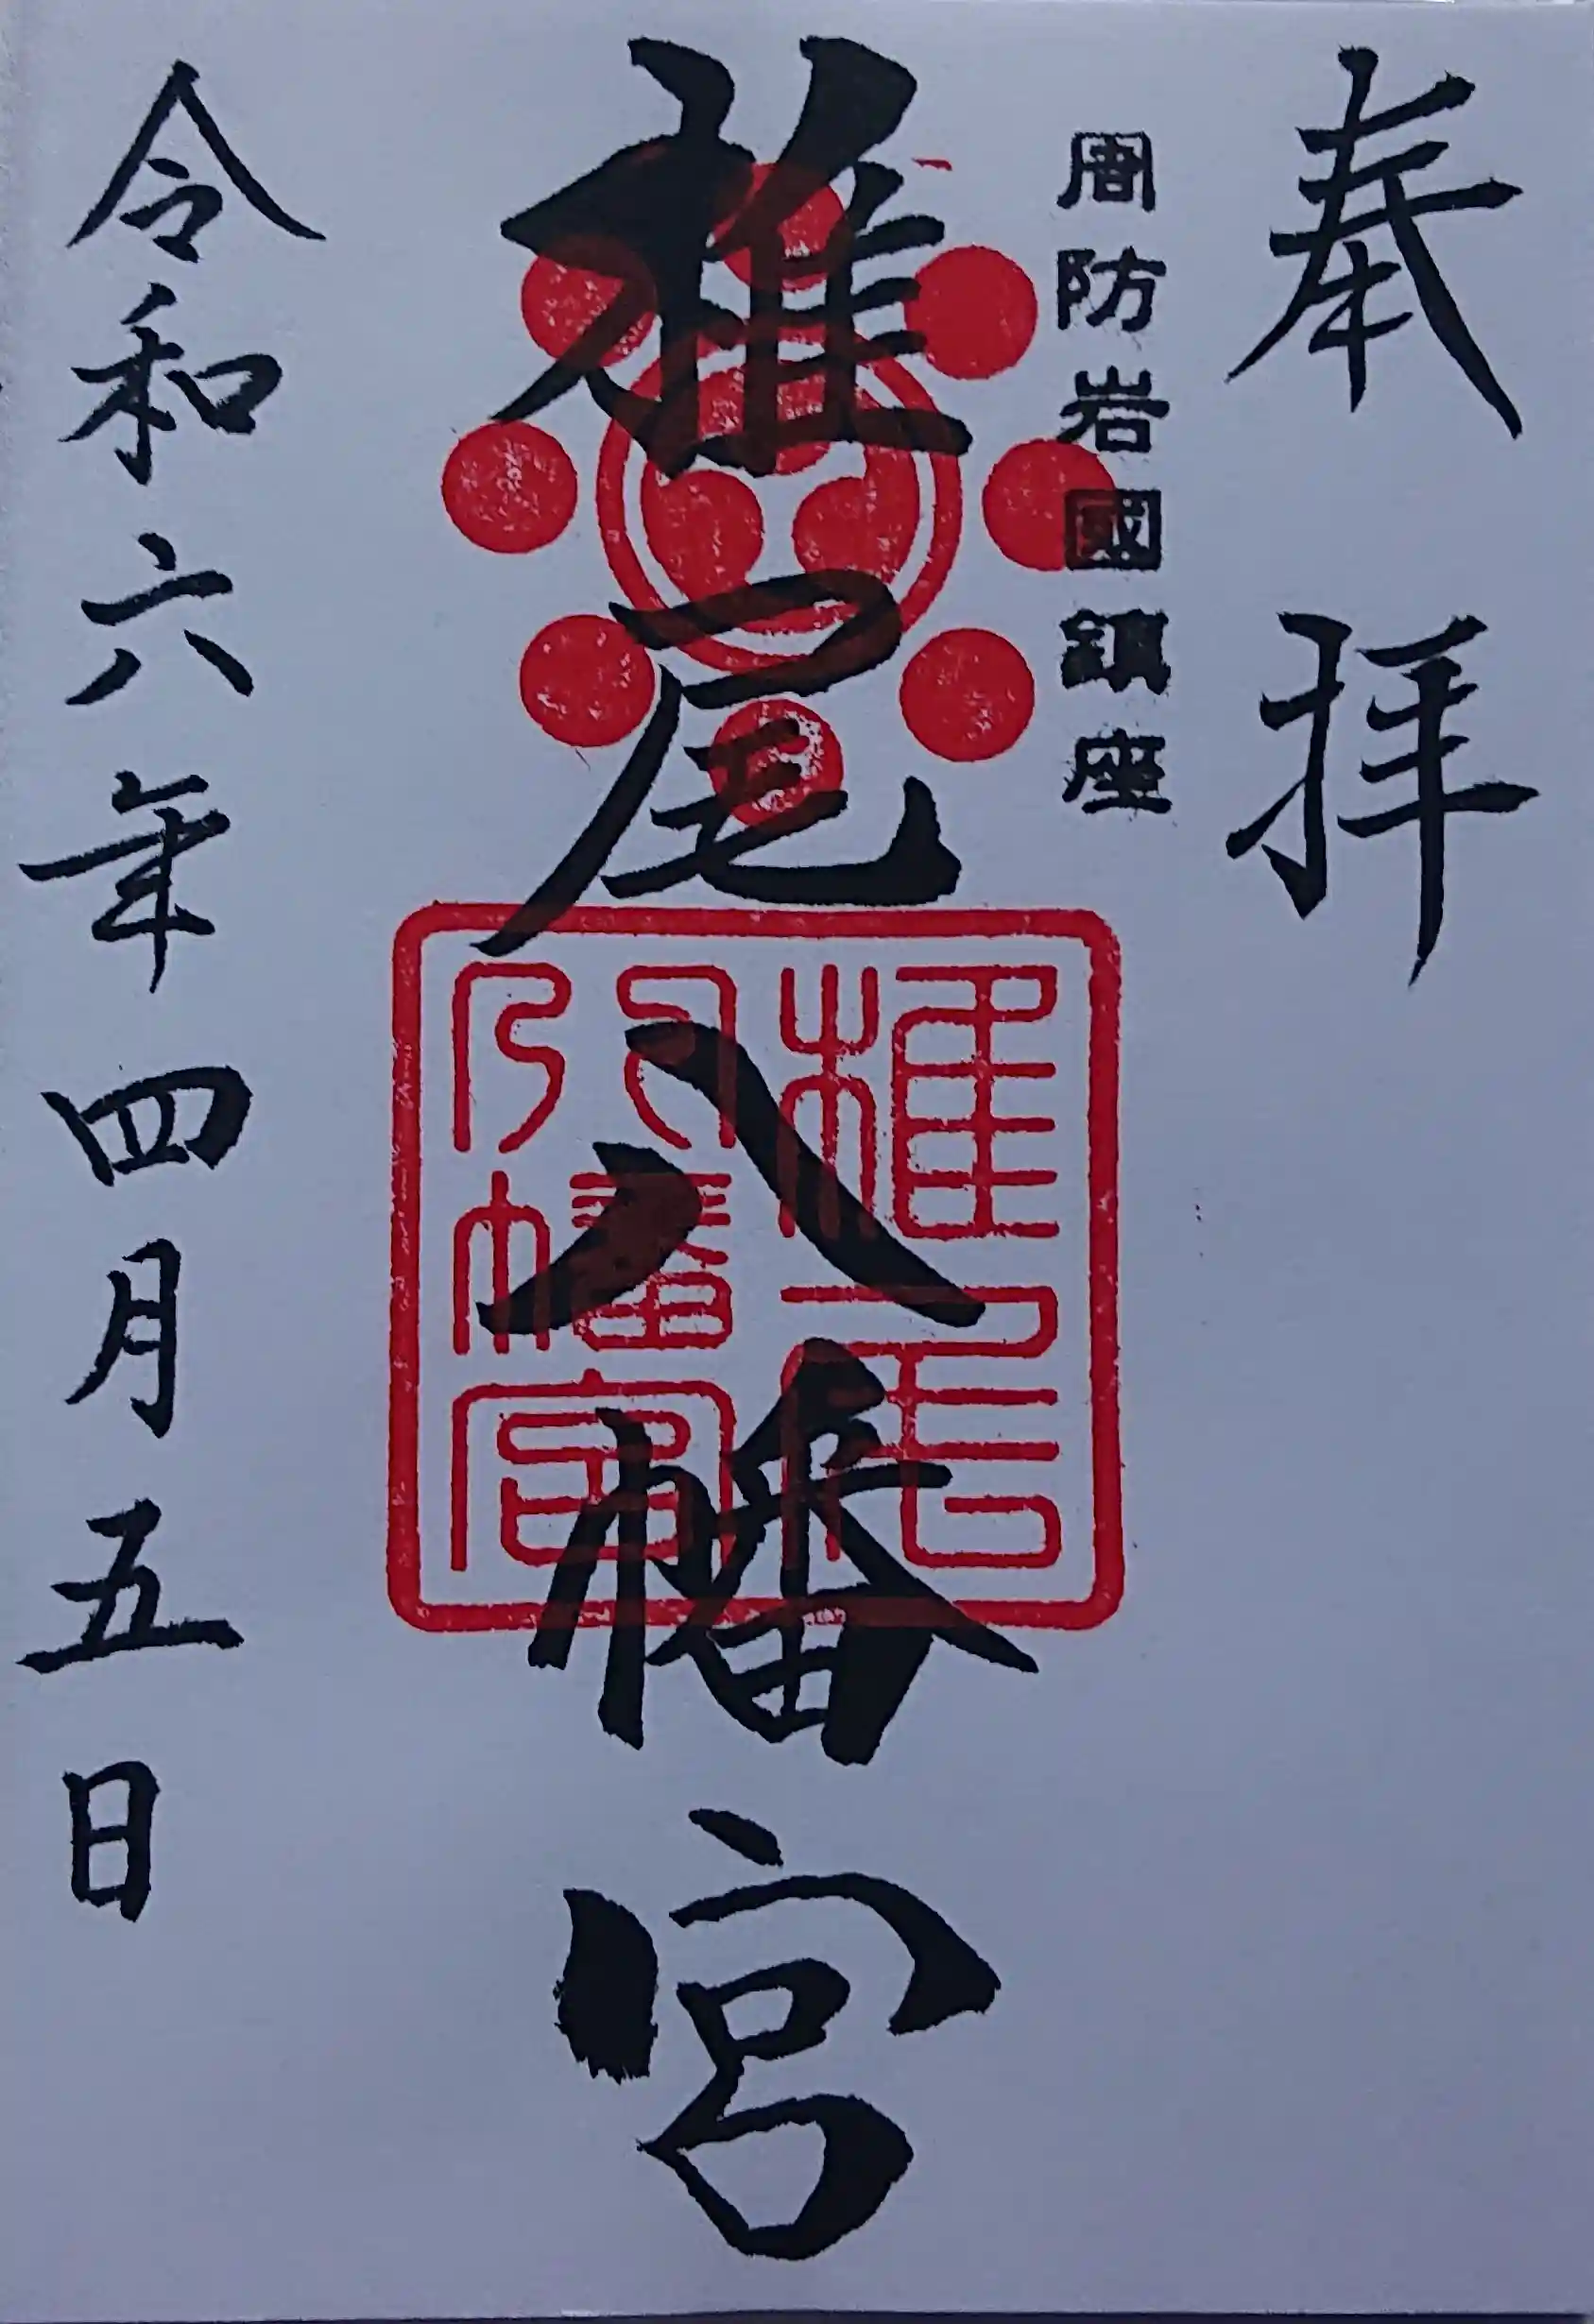 奉拝
周防岩國鎮座
椎尾八幡宮
椎尾
八幡宮
令和六年四月五日